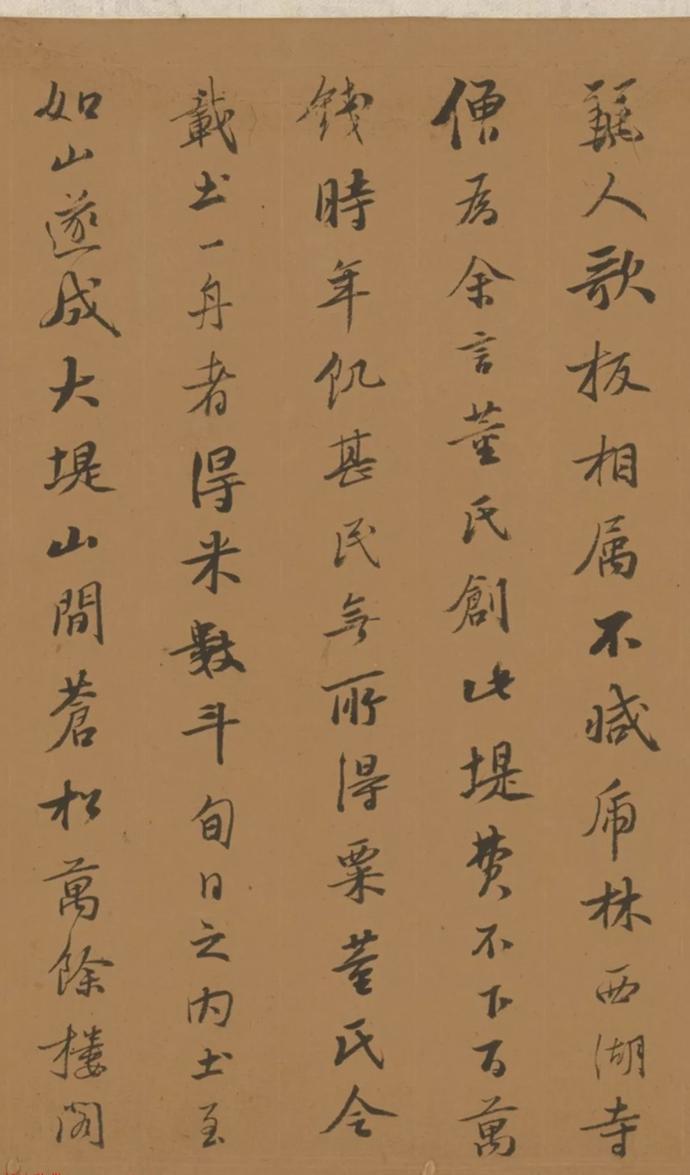 麗人歌板相属不减虎林西湖寺
僧为余言董氏創此堤費不下百萬
錢時年飢甚民無所得粟董氏令
載土一舟者得米數斗旬日之内土至
如山遂成大堤山間蒼松萬餘樓閣